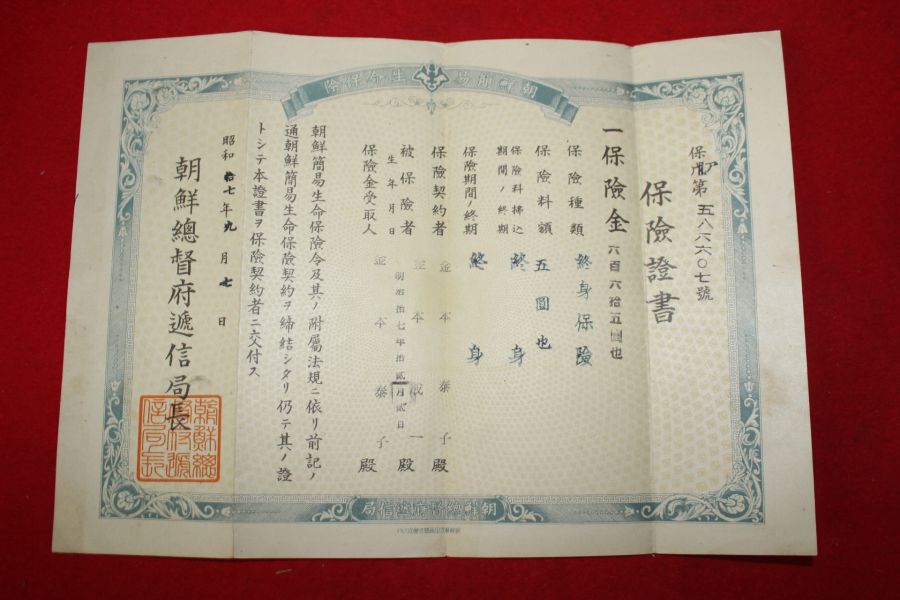 朝鮮簡易生命保險
第五八六六〇七號
保險證書
一保險金六百六拾五圓也
保險種類 終身保險
保險料額 五圓也
保險料拂込期間ノ終期 終身
保險期間ノ終期 終身
保險契約者 金本泰子殿
被保險者 金本 一殿
生年月日 明治拾七年拾貳月貳日
保險金受取人 金本泰子殿
朝鮮簡易生命保險令及其ノ附屬法規ニ依リ前記ノ
通朝鮮簡易生命保險契約ヲ締結シタリ仍テ其ノ證
トシテ本證書ヲ保險契約者ニ交付ス
昭和拾七年九月七日
朝鮮總督府遞信局長
朝鮮總督府遞信局長
朝鮮總督府遞信局